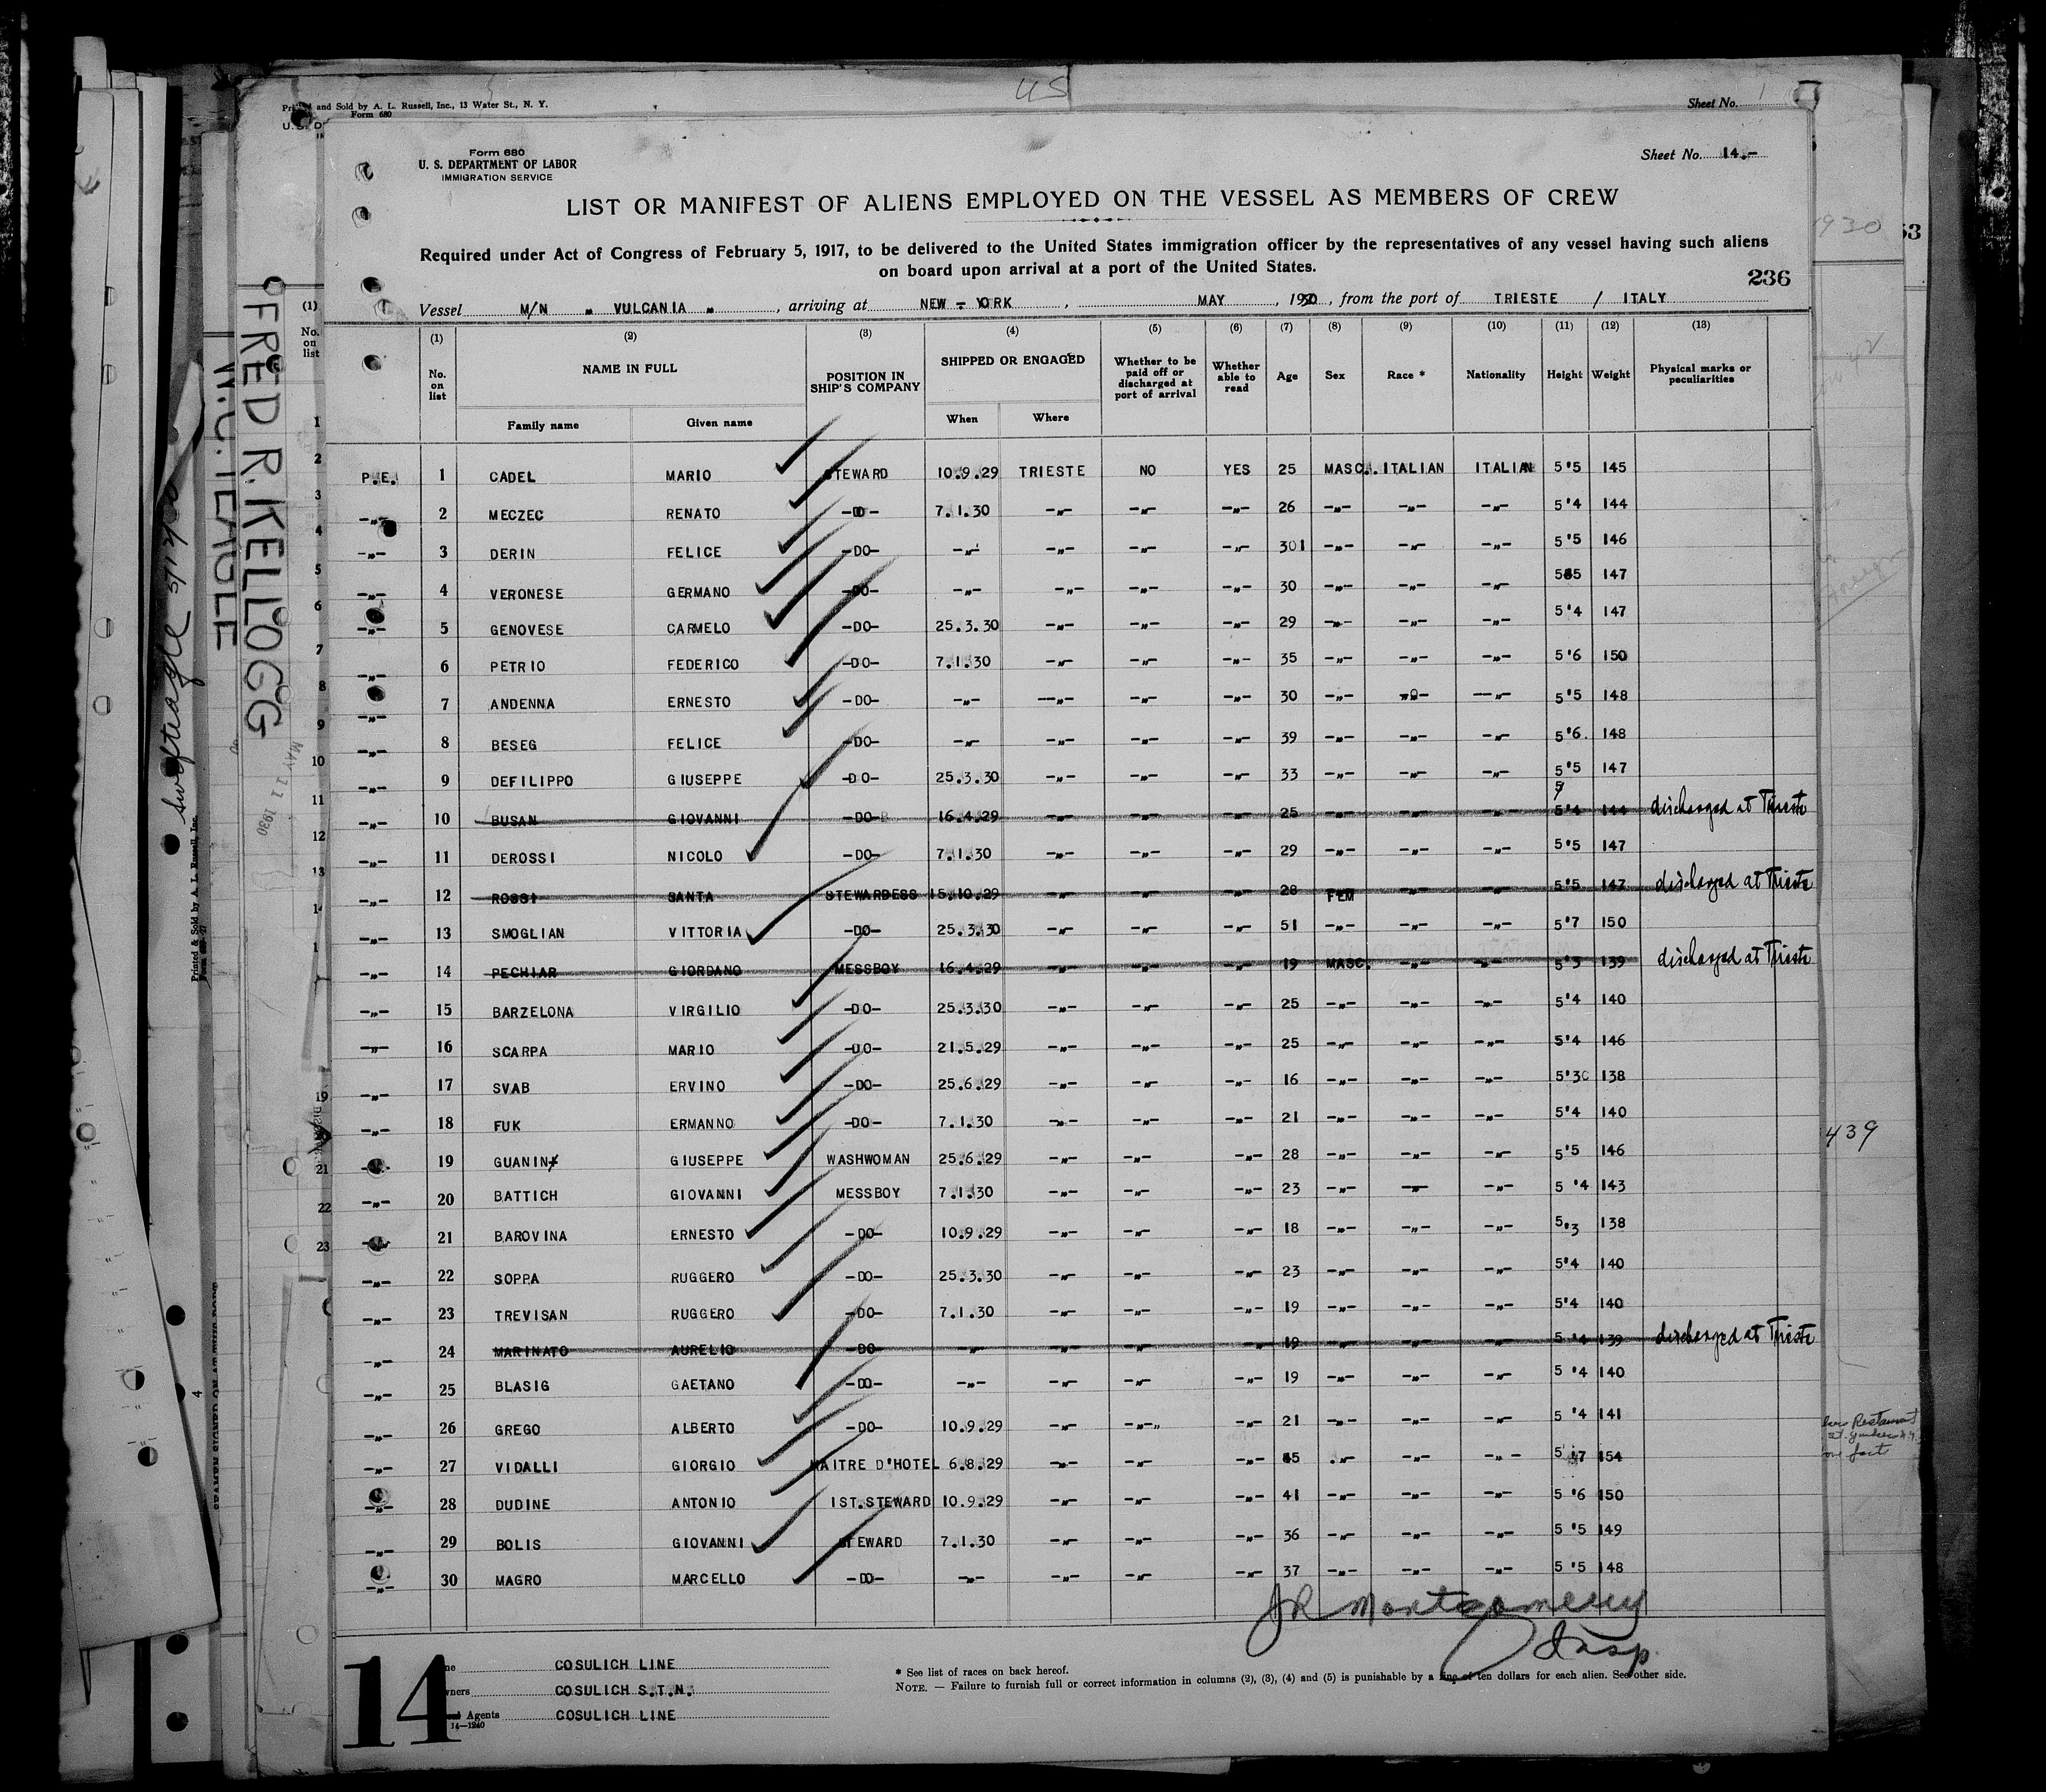 US
Printed and Sold by A. L. Russell, Inc., 13 Water St., N. Y.
Form 680
Sheet No. 1
Form 680
U. S. DEPARTMENT OF LABOR
IMMIGRATION SERVICE
Sheet No. 14.-
LIST OR MANIFEST OF ALIENS EMPLOYED ON THE VESSEL AS MEMBERS OF CREW
Required under Act of Congress of February 5, 1917, to be delivered to the United States immigration officer by the representatives of any vessel having such aliens
on board upon arrival at a port of the United States.
236
Vessel M/N " VULCANIA " , arriving at NEW - YORK , MAY , 1930 , from the port of TRIESTE / ITALY
(1) (2) (3) (4) (5) (6) (7) (8) (9) (10) (11) (12) (13)
No. on list NAME IN FULL POSITION IN SHIP'S COMPANY SHIPPED OR ENGAGED Whether to be paid off or discharged at port of arrival Whether able to read Age Sex Race * Nationality Height Weight Physical marks or peculiarities
Family name Given name When Where
P.E. 1 CADEL MARIO STEWARD 10.9.29 TRIESTE NO YES 25 MASC. ITALIAN ITALIAN 5'5 145
-"- 2 MECZEC RENATO -DO- 7.1.30 -"- -"- -"- 26 -"- -"- -"- 5'4 144
-"- 3 DERIN FELICE -DO- -"- -"- -"- -"- 301 -"- -"- -"- 5'5 146
-"- 4 VERONESE GERMANO -DO- -"- -"- -"- -"- 30 -"- -"- -"- 5'5 147
-"- 5 GENOVESE CARMELO -DO- 25.3.30 -"- -"- -"- 29 -"- -"- -"- 5'4 147
-"- 6 PETRIO FEDERICO -DO- 7.1.30 -"- -"- -"- 35 -"- -"- -"- 5'6 150
-"- 7 ANDENNA ERNESTO -DO- -"- -"- -"- -"- 30 -"- -"- -"- 5'5 148
-"- 8 BESEG FELICE -DO- -"- -"- -"- -"- 39 -"- -"- -"- 5'6. 148
-"- 9 DEFILIPPO GIUSEPPE -DO- 25.3.30 -"- -"- -"- 33 -"- -"- -"- 5'5 147
-"- 10 BUSAN GIOVANNI -DO- 16.4.29 -"- -"- -"- 25 -"- -"- -"- 5'4 144 discharged at Trieste
-"- 11 DEROSSI NICOLO -DO- 7.1.30 -"- -"- -"- 29 -"- -"- -"- 5'5 147
-"- 12 ROSSI SANTA STEWARDESS 15.10.29 -"- -"- -"- 28 FEM -"- -"- 5'5 147 discharged at Trieste
-"- 13 SMOGLIAN VITTORIA -DO- 25.3.30 -"- -"- -"- 51 -"- -"- -"- 5'7 150
-"- 14 PECHIAR GIORDANO MESSBOY 16.4.29 -"- -"- -"- 19 MASC. -"- -"- 5'3 139 discharged at Trieste
-"- 15 BARZELONA VIRGILIO -DO- 25.3.30 -"- -"- -"- 25 -"- -"- -"- 5'4 140
-"- 16 SCARPA MARIO -DO- 21.5.29 -"- -"- -"- 25 -"- -"- -"- 5'4 146
-"- 17 SVAB ERVINO -DO- 25.6.29 -"- -"- -"- 16 -"- -"- -"- 5'3 138
-"- 18 FUK ERMANNO -DO- 7.1.30 -"- -"- -"- 21 -"- -"- -"- 5'4 140
-"- 19 GUANIN GIUSEPPE WASHWOMAN 25.6.29 -"- -"- -"- 28 -"- -"- -"- 5'5 146
-"- 20 BATTICH GIOVANNI MESSBOY 7.1.30 -"- -"- -"- 23 -"- -"- -"- 5 '4 143
-"- 21 BAROVINA ERNESTO -DO- 10.9.29 -"- -"- -"- 18 -"- -"- -"- 5'3 138
-"- 22 SOPPA RUGGERO -DO- 25.3.30 -"- -"- -"- 23 -"- -"- -"- 5'4 140
-"- 23 TREVISAN RUGGERO -DO- 7.1.30 -"- -"- -"- 19 -"- -"- -"- 5'4 140
-"- 24 MARINATO AURELIO -DO- -"- -"- -"- -"- 19 -"- -"- -"- 5 '4 139 discharged at Trieste
-"- 25 BLASIG GAETANO -DO- -"- -"- -"- -"- 19 -"- -"- -"- 5 '4 140
-"- 26 GREGO ALBERTO -DO- 10.9.29 -"- -"- -"- 21 -"- -"- -"- 5 '4 141
-"- 27 VIDALLI GIORGIO MAITRE D'HOTEL 6.8.29 -"- -"- -"- 45 -"- -"- -"- 5 '7 154
-"- 28 DUDINE ANTONIO 1ST.STEWARD 10.9.29 -"- -"- -"- 41 -"- -"- -"- 5 '6 150
-"- 29 BOLIS GIOVANNI STEWARD 7.1.30 -"- -"- -"- 36 -"- -"- -"- 5 '5 149
-"- 30 MAGRO MARCELLO -DO- -"- -"- -"- -"- 37 -"- -"- -"- 5 '5 148
JR Montgomery
Insp.
14
COSULICH LINE
COSULICH S.T.N.
Agents COSULICH LINE
14-1240
* See list of races on back hereof.
NOTE. — Failure to furnish full or correct information in columns (2), (3), (4) and (5) is punishable by a fine of ten dollars for each alien. See other side.
FRED R. KELLOGG
W.C. TEAGLE
MAY 11 1930
Printed & Sold by A. L. Russell, Inc.
1930
53
439